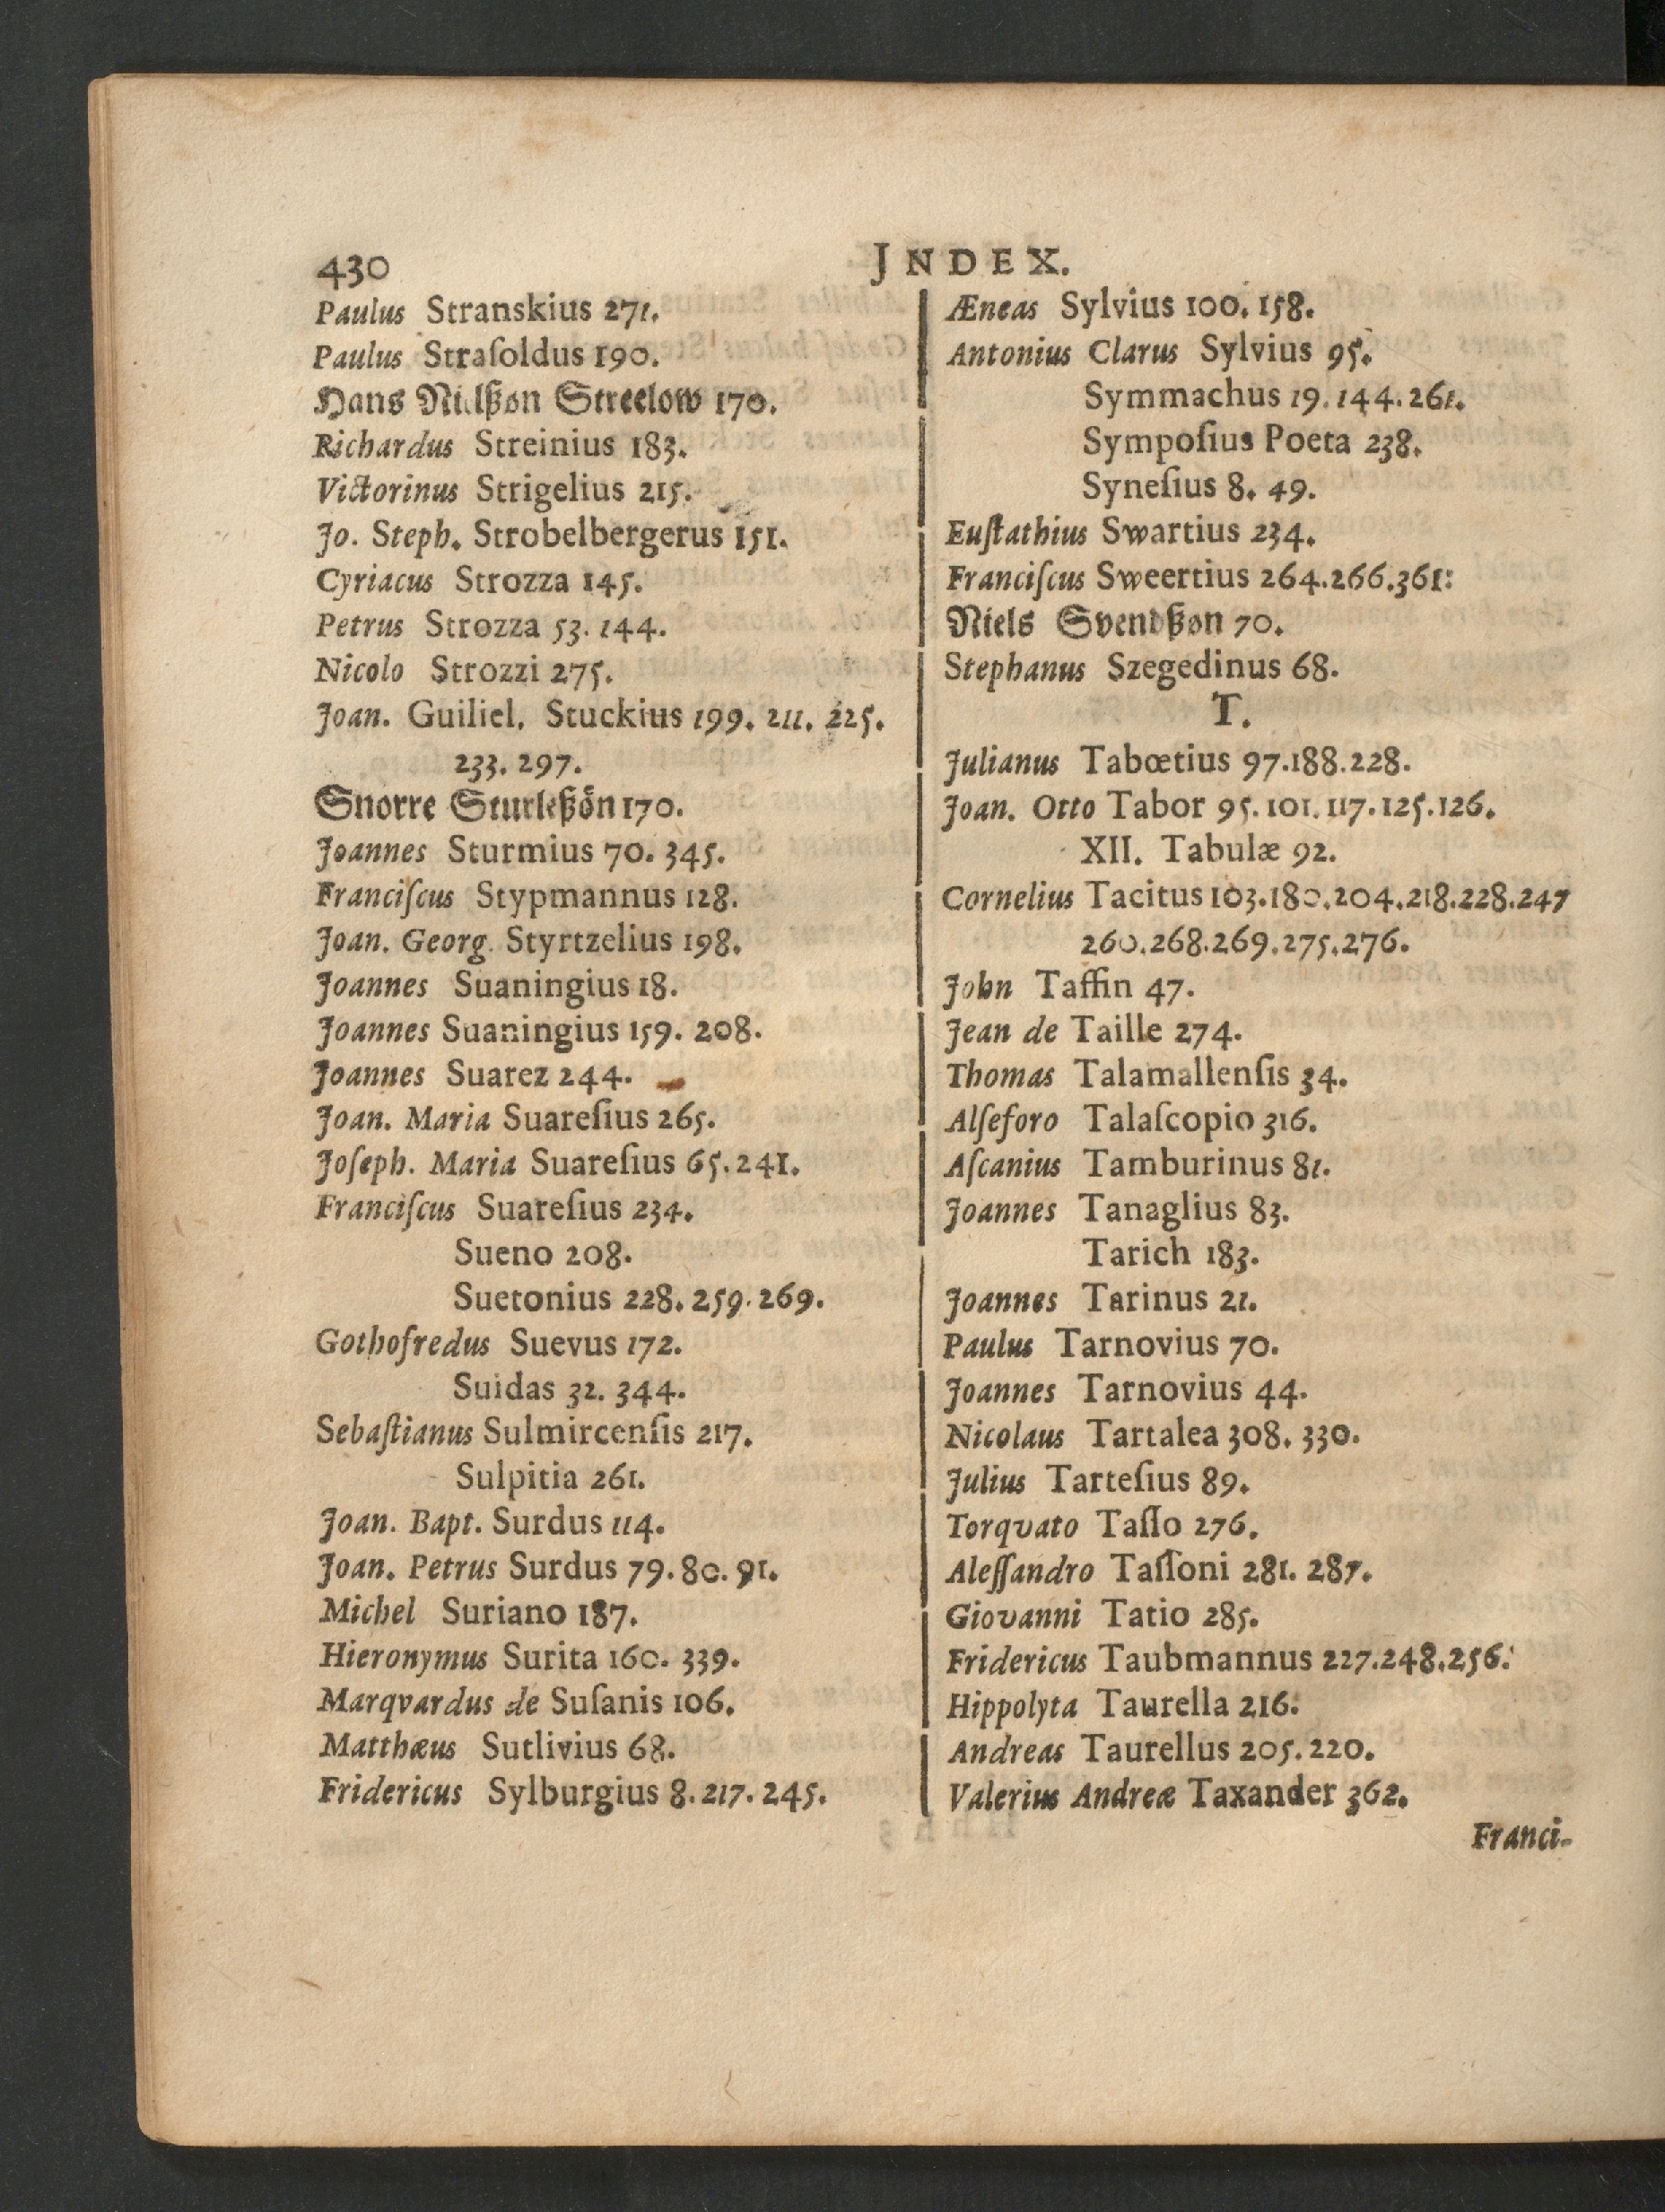 430
JNDEX.
Paulus Stranskius 271.
Paulus Straſoldus 190.
Hans Nielßøn Streelow 170.
Richardus Streinius 183.
Victorinus Strigelius 215.
Jo. Steph. Strobelbergerus 151.
Cyriacus Strozza 145.
Petrus Strozza 53. 144.
Nicolo Strozzi 275.
Joan. Guiliel. Stuckius 199. 211. 225.
233. 297.
Snorre Sturleßön 170.
Joannes Sturmius 70. 345.
Franciſcus Stypmannus 128.
Joan. Georg. Styrtzelius 198.
Joannes Suaningius 18.
Joannes Suaningius 159. 208.
Joannes Suarez 244.
Joan. Maria Suareſius 265.
Joſeph. Maria Suareſius 65. 241.
Franciſcus Suareſius 234.
Sueno 208.
Suetonius 228. 259. 269.
Gothofredus Suevus 172.
Suidas 32. 344.
Sebaſtianus Sulmircenſis 217.
Sulpitia 261.
Joan. Bapt. Surdus 114.
Joan. Petrus Surdus 79. 80. 91.
Michel Suriano 187.
Hieronymus Surita 160. 339.
Marqvardus de Suſanis 106.
Matthæus Sutlivius 68.
Fridericus Sylburgius 8. 217. 245.
Æneas Sylvius 100. 158.
Antonius Clarus Sylvius 95.
Symmachus 19. 144. 261.
Sympoſius Poeta 238.
Syneſius 8. 49.
Euſtathius Swartius 234.
Franciſcus Sweertius 264.266.361:
Niels Svendßøn 70.
Stephanus Szegedinus 68.
T.
Julianus Tabœtius 97.188.228.
Joan. Otto Tabor 95. 101. 117. 125.126.
XII. Tabulæ 92.
Cornelius Tacitus 103.180.204.218.228.247
260.268.269.275.276.
John Taffin 47.
Jean de Taille 274.
Thomas Talamallenſis 34.
Alſeforo Talaſcopio 316.
Aſcanius Tamburinus 81.
Joannes Tanaglius 83.
Tarich 183.
Joannes Tarinus 21.
Paulus Tarnovius 70.
Joannes Tarnovius 44.
Nicolaus Tartalea 308. 330.
Julius Parteſius 89.
Torqvato Taſſo 276.
Aleſſandro Taſſoni 281. 287.
Giovanni Tatio 285.
Fridericus Taubmannus 227.248.256.
Hippolyta Taurella 216.
Andreas Taurellus 205. 220.
Valerius Andreæ Taxander 362.
Franci-